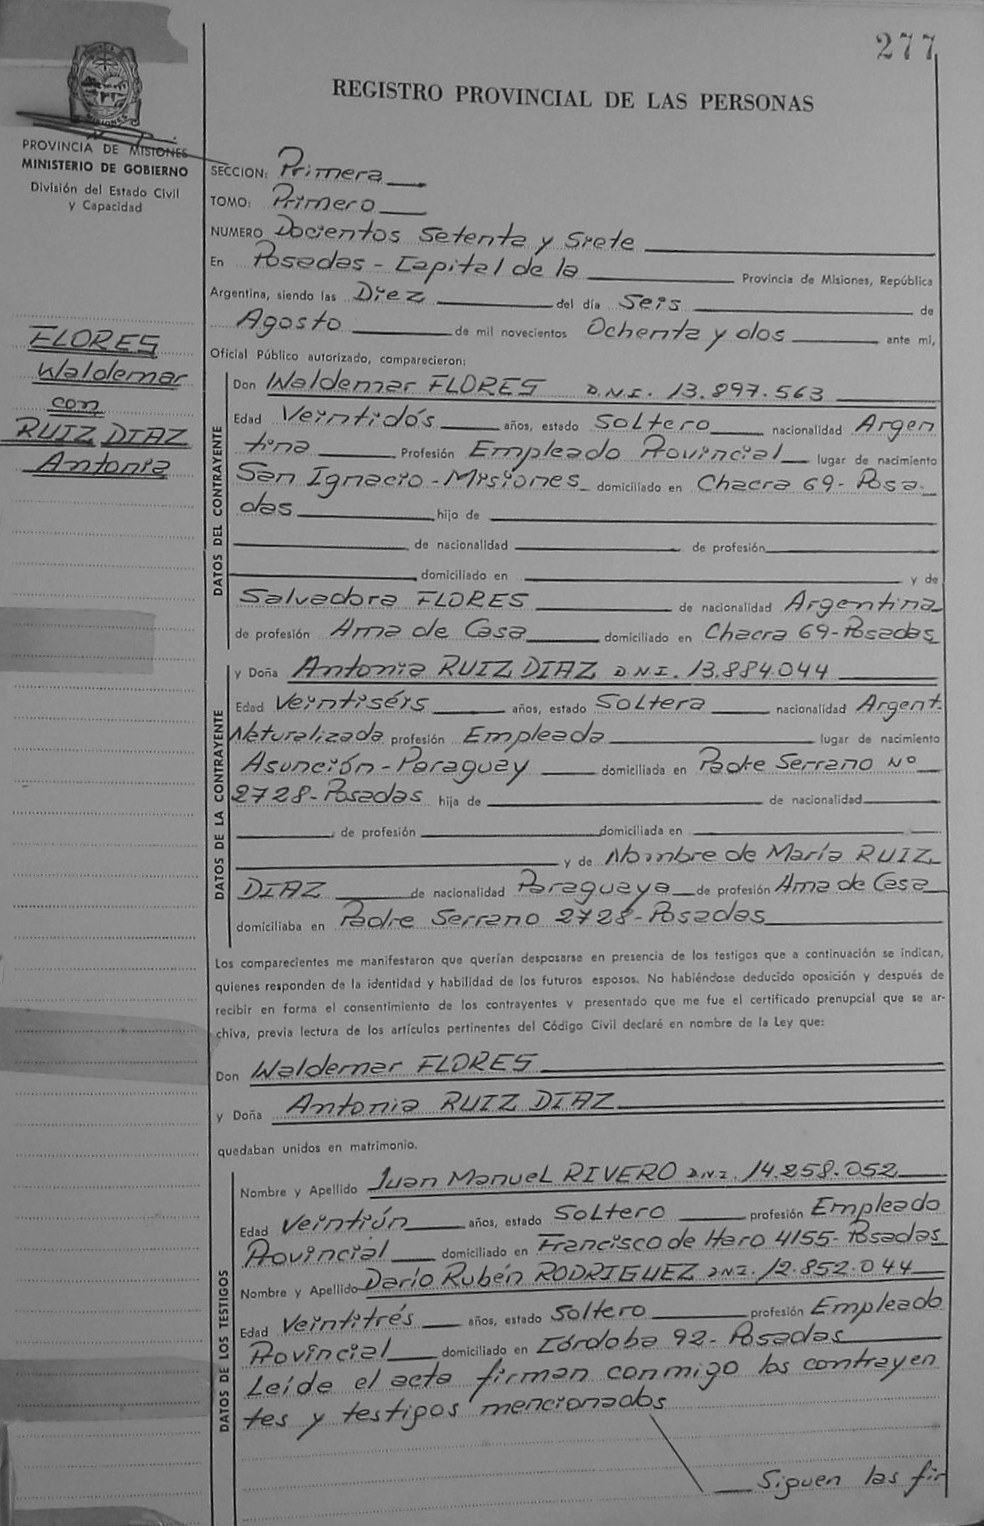 277
REGISTRO PROVINCIAL DE LAS PERSONAS
PROVINCIA DE MISIONES
MINISTERIO DE GOBIERNO
División del Estado Civil
y Capacidad
SECCION: Primera
TOMO: Primero
NUMERO Docientos Setenta y Siete
En Posadas - Capital de la Provincia de Misiones, República
Argentina, siendo las Diez del día Seis de
Agosto de mil novecientos Ochenta y dos ante mi,
Oficial Público autorizado, comparecieron:
FLORES
Waldemar
con
RUIZ DIAZ
Antonia
DATOS DEL CONTRAYENTE
Don Waldemar FLORES D.N.I. 13.897.563
Edad Veintidós años, estado Soltero nacionalidad Argen
tina Profesión Empleado Provincial lugar de nacimiento
San Ignacio - Misiones domiciliado en Chacra 69 - Posa-
das hijo de
de nacionalidad de profesión
domiciliado en y de
Salvadora FLORES de nacionalidad Argentina
de profesión Ama de Casa domiciliado en Chacra 69 - Posadas
DATOS DE LA CONTRAYENTE
y Doña Antonia RUIZ DIAZ D.N.I. 13.884.044
Edad Veintiséis años, estado Soltera nacionalidad Argent.
Naturalizada profesión Empleada lugar de nacimiento
Asunción - Paraguay domiciliada en Padre Serrano Nº
2728 - Posadas hija de de nacionalidad
de profesión domiciliada en
y de Nombre de María RUIZ
DIAZ de nacionalidad Paraguaya de profesión Ama de Casa
domiciliaba en Padre Serrano 2728 - Posadas
Los comparecientes me manifestaron que querían desposarse en presencia de los testigos que a continuación se indican,
quienes responden de la identidad y habilidad de los futuros esposos. No habiéndose deducido oposición y después de
recibir en forma el consentimiento de los contrayentes y presentado que me fue el certificado prenupcial que se ar-
chiva, previa lectura de los artículos pertinentes del Código Civil declaré en nombre de la Ley que:
Don Waldemar FLORES
y Doña Antonia RUIZ DIAZ
quedaban unidos en matrimonio.
DATOS DE LOS TESTIGOS
Nombre y Apellido Juan Manuel RIVERO D.N.I. 14.258.052
Edad Veintiún años, estado Soltero profesión Empleado
Provincial domiciliado en Francisco de Haro 4155 - Posadas
Nombre y Apellido Darío Rubén RODRIGUEZ D.N.I. 12.852.044
Edad Veintitrés años, estado Soltero profesión Empleado
Provincial domiciliado en Córdoba 92 - Posadas
Leída el acta firman conmigo los contrayen
tes y testigos mencionados
Siguen las fir